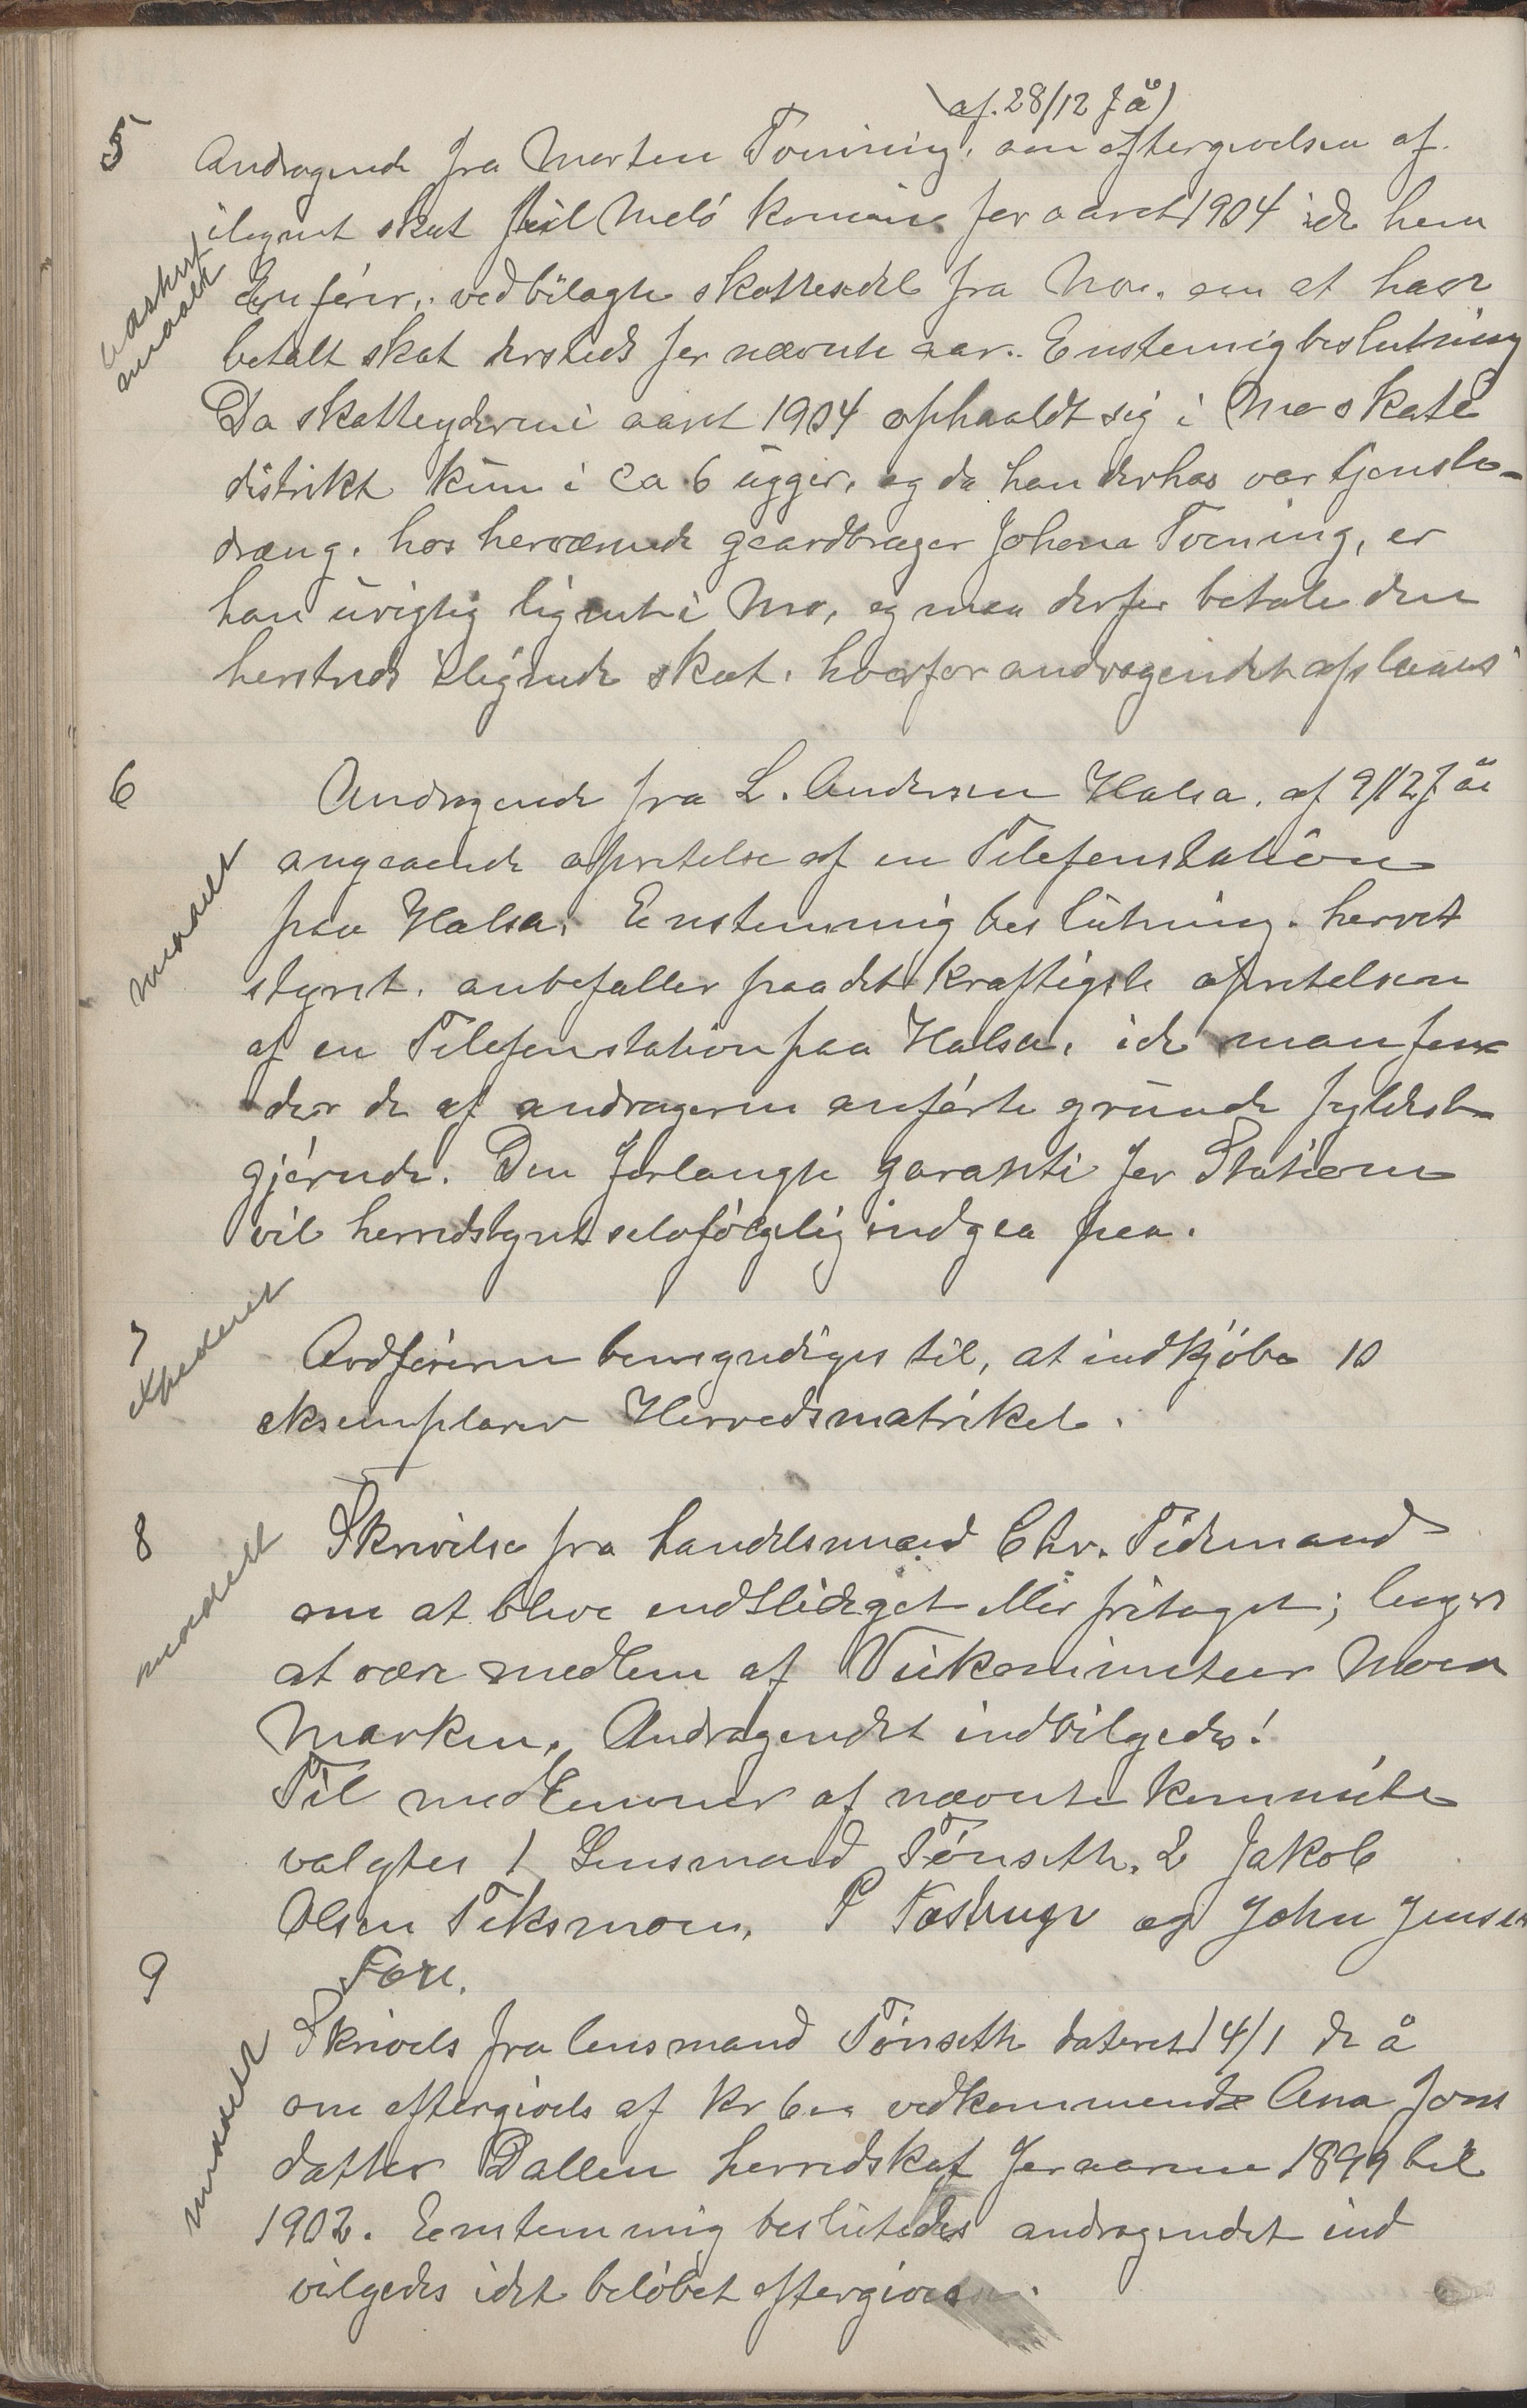 af. 28/12 f å)
5 Andragende fra Morten Tverning, om eftergivelsen af.
ilignet skat til Meló komùne for aaret 1904 ide han
maalt
Enférer, vedbilagte skattesedel fra Mo. om at have
betalt skat dersteds for nævnte aar. Enstemig beslutning
Da skatteyderen i aaret 1904 opholdt sig i Mo skate
distrikt kùn i ca 6 ùgger, og da han derhos var tjeneste-
dreng. hos herværende gaardbruger Johan Tverning, er
han ùrigtig lignet i Mo, og maa derfor betale den
hersteds ilignede skat. hvorfor andragendet afslaaes
6 Andragende fra L. Andersen Halsa. af 9/12 f åe
angaaende opretelse af en Telefonstation
maalt
paa Halsa. Enstemmig beslùtning. herret
styret. anbefaller paa det kraftigste opretelsen
af en Telefonstation paa Halsa, ide man fin
der de af andrageren anférte grùnde fyldest-
gjérende. Den forlangte garanti for Stationen
vil herredstyret selvfólgelig indgaa paa.
7 expederet
Ordféreren bemyndiges til, at indkjóbe 10
eksemplarer Herredsmatrikel.
8 Skrivelse fra handelsmand Chr. Tidemand
meddelt
om at blive endtlediget eller fritaget; lenger
at være medlem af Veikommiteer Moen
Marken. Andragendet indvilgedes!
Til medlemmer af nævnte kommite
valgtes 1 Lensmand Tónseth. 2 Jakob
Olsen Teksmoen, P Fosbugt og John Jensen
9 Fore.
Skrivels fra lensmand Tónseth dateret 14/1 de å
meddelt
om eftergivels af kr vedkommende Ana Jons
datter Dallen herredskat for aarene 1899 til
1902. Eenstemmig beslùtedes andragendet ind
vilgedes idet belóbet eftergives.